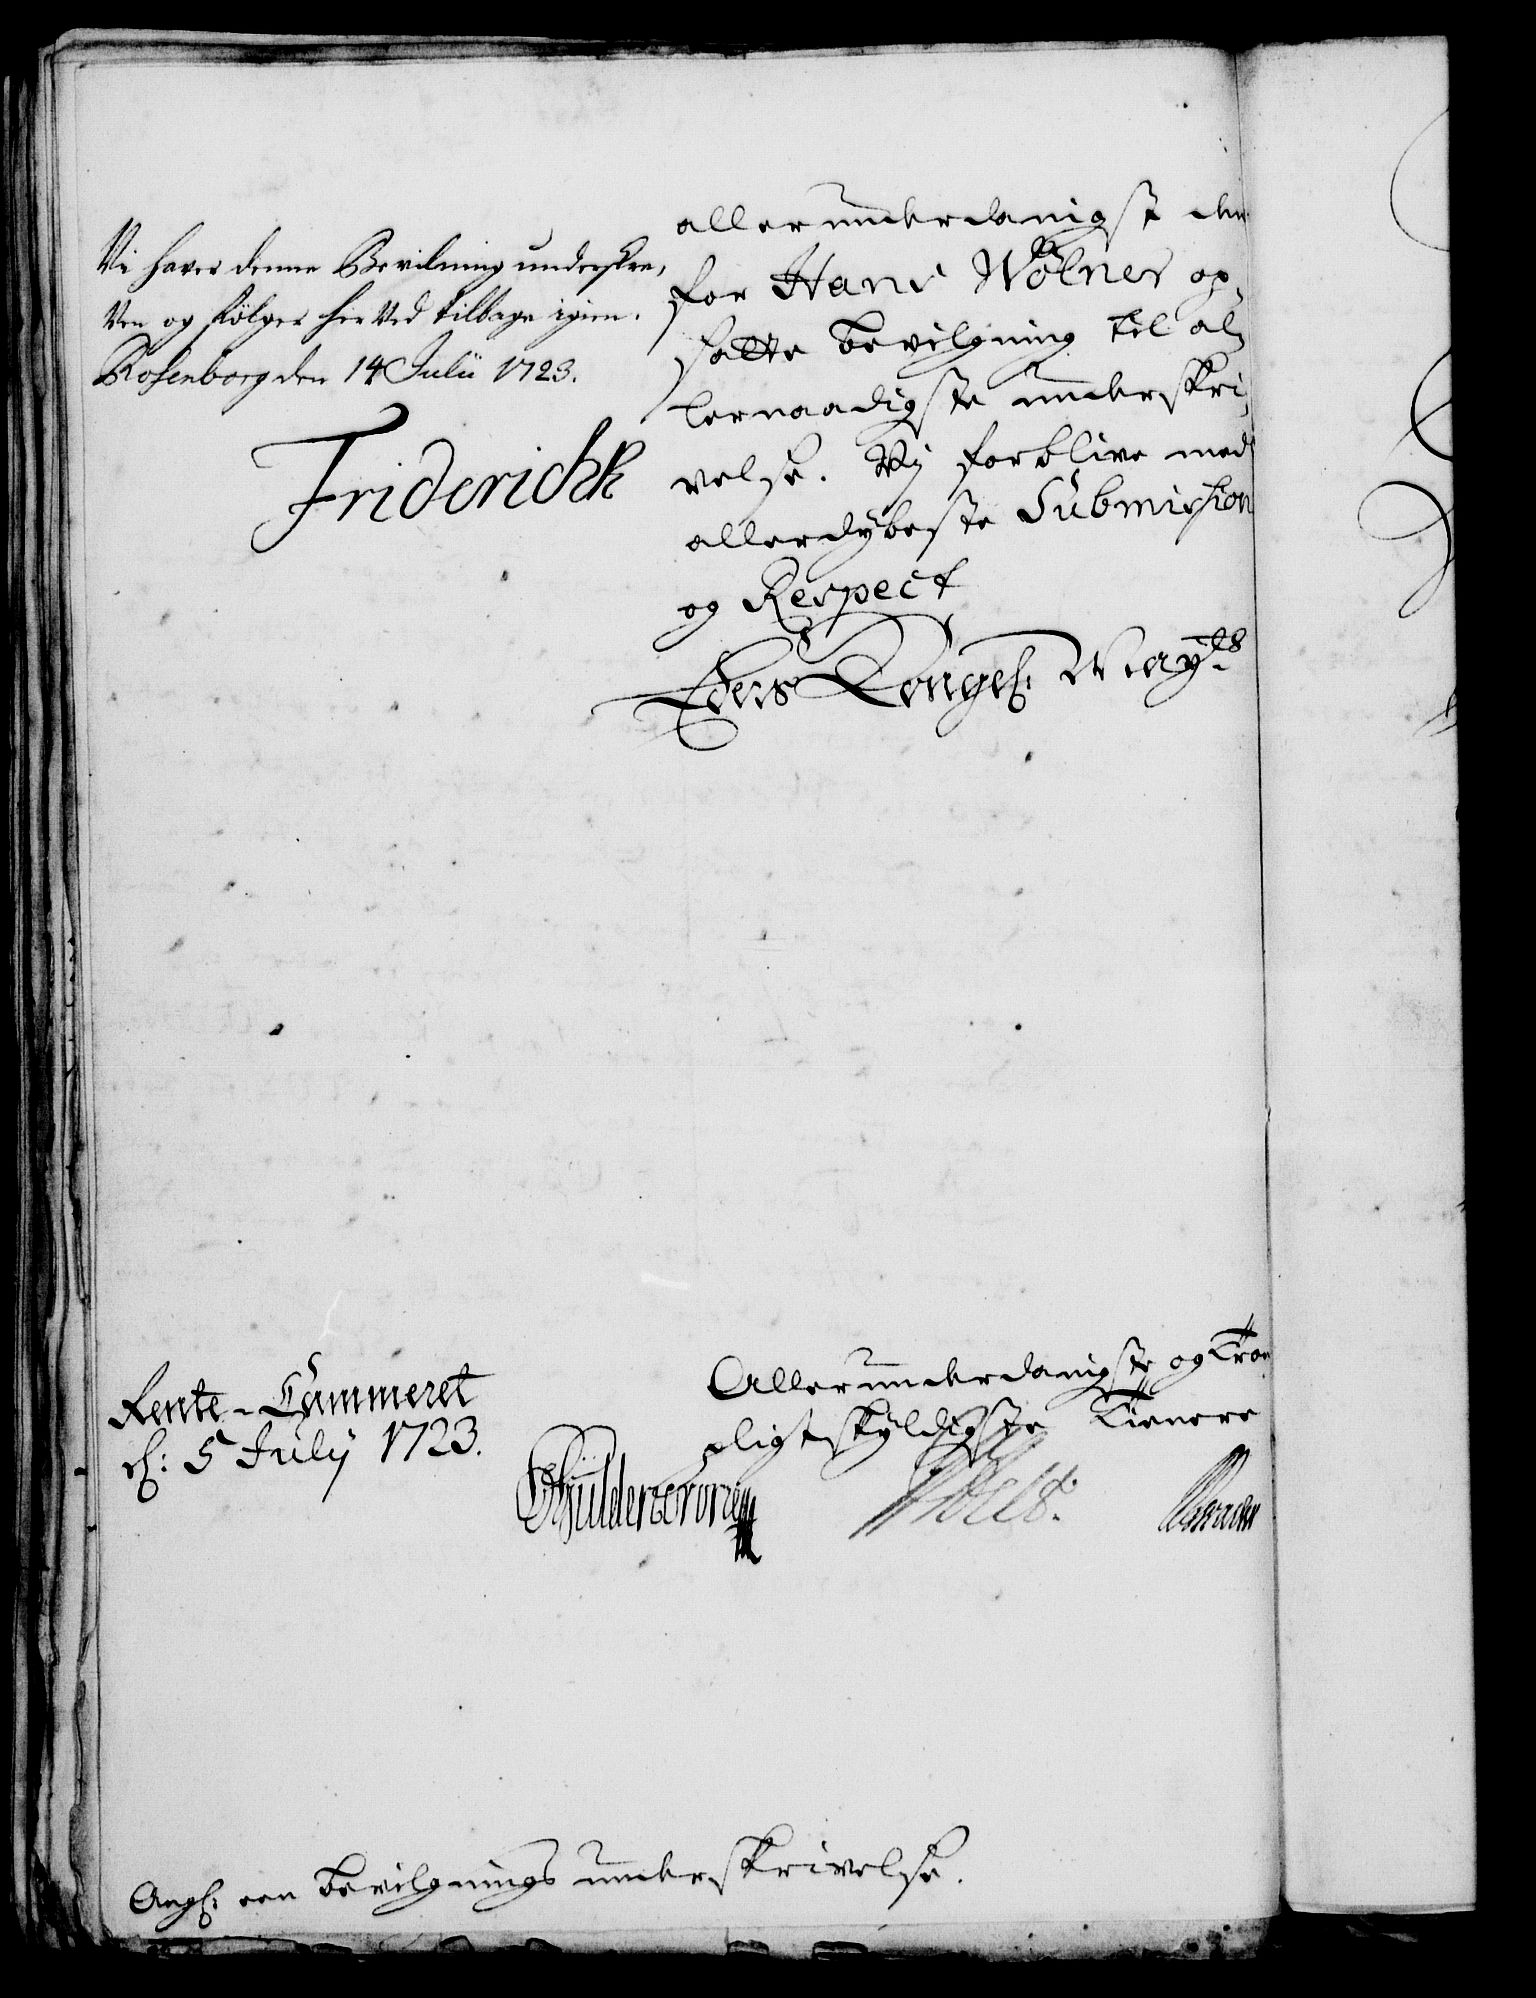 Vi haver denne Bevilning underskre,
ven og følger her Ved tilbage igien.
Rosenborg den 14 Julii 1723.
Friderich R
allerunderdanigst den
for Hans Wölner op,
satte bevilgning til al,
lernaadigste underskri,
velse. Vj forblive med
allerdybeste Submission
og Respect
Eders Kongel: Mayts
Rente-Cammeret
d: 5 July 1723.
Allerunderdanigste og troe
pligtskyldigste Tienere
CGyldencrone
Angl: een bevilgnings underskrivelse.